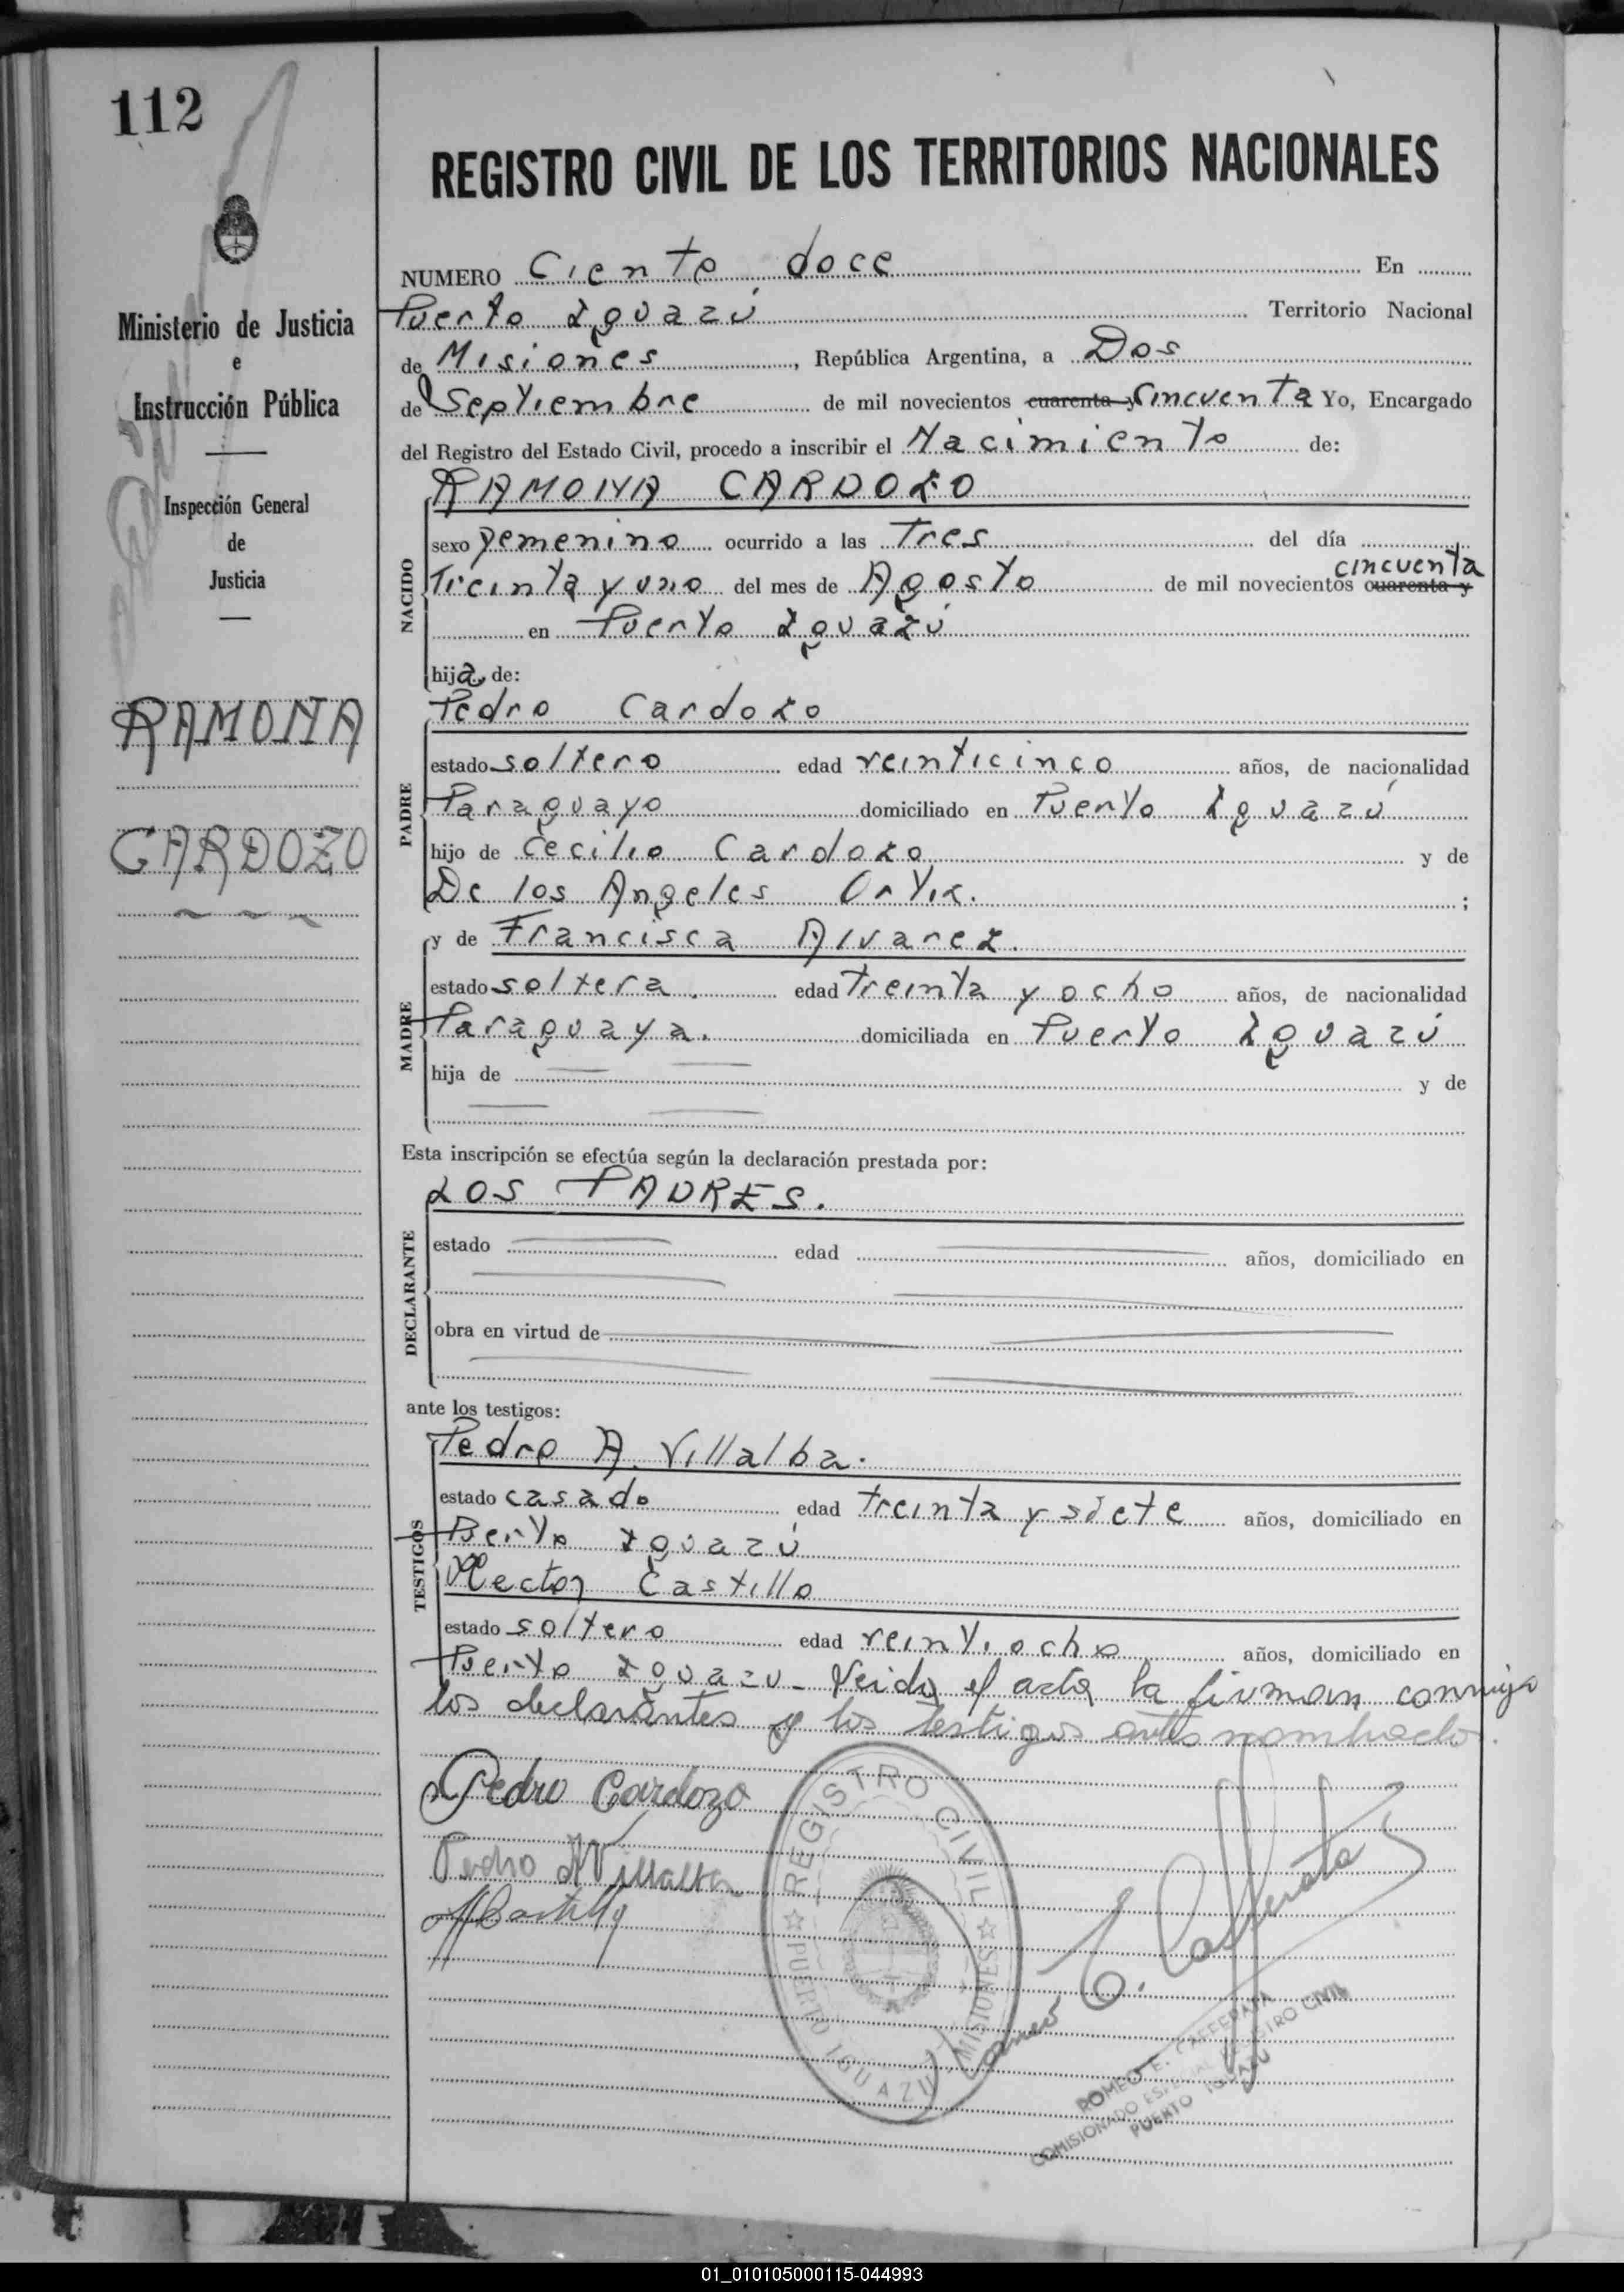 112
Ministerio de Justicia
e
Instrucción Pública
Inspección General
de
Justicia
RAMONA
CARDOZO
REGISTRO CIVIL DE LOS TERRITORIOS NACIONALES
NUMERO Ciento doce En
Puerto Iguazú Territorio Nacional
de Misiones, República Argentina, a Dos
de Septiembre de mil novecientos cuarenta y cincuenta Yo, Encargado
del Registro del Estado Civil, procedo a inscribir el Nacimiento de:
RAMONA CARDOZO
NACIDO
sexo femenino ocurrido a las Tres del día
cincuenta
Treinta y uno del mes de Agosto de mil novecientos cuarenta y
en Puerto Iguazú
hija de:
Pedro Cardozo
PADRE
estado soltero edad veinticinco años, de nacionalidad
Paraguayo domiciliado en Puerto Iguazú
hijo de Cecilio Cardozo y de
De los Angeles Ortiz. ;
y de Francisca Alvarez.
MADRE
estado soltera. edad treinta y ocho años, de nacionalidad
Paraguaya. domiciliada en Puerto Iguazú
hija de y de
Esta inscripción se efectúa según la declaración prestada por:
LOS PADRES.
DECLARANTE
estado edad años, domiciliado en
obra en virtud de
ante los testigos:
Pedro A. Villalba.
TESTIGOS
estado casado edad treinta y siete años, domiciliado en
Puerto Iguazú
Hector Castillo
estado soltero edad veintiocho años, domiciliado en
Puerto Iguazu - Leida el acta la firman conmigo
los declarantes y los testigos antes nombrados.
Pedro Cardozo
Pedro A Villalba
HCastillo
REGISTRO CIVIL
PUERTO IGUAZU MISIONES
Romeo E. Cafferata
ROMEO E. CAFFERATA
COMISIONADO ESPECIAL REGISTRO CIVIL
PUERTO IGUAZU
01_010105000115-044993